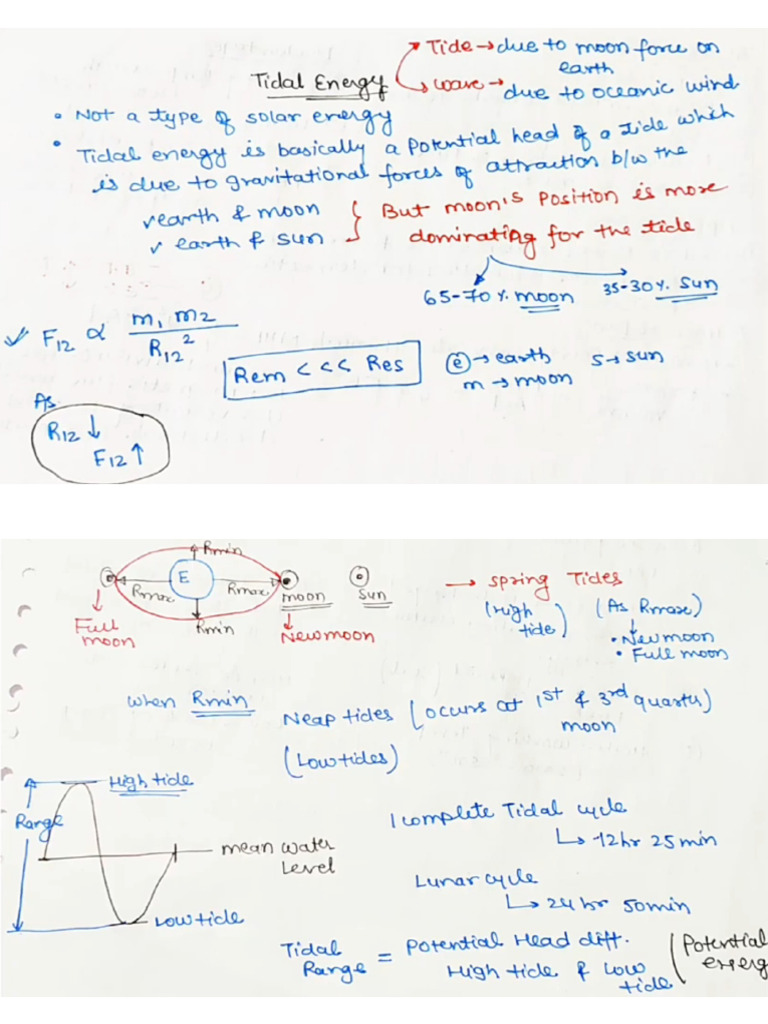 Tide → due to moon force on
earth
Tidal Energy
wave → due to oceanic wind
• Not a type of solar energy
• Tidal energy is basically a potential head of a tide which
is due to gravitational forces of attraction b/w the
✓ earth & moon
✓ earth & sun
But moon's position is more
dominating for the tide
65-70 % moon
35-30 %. Sun
✓ F12 ∝ m1 m2 / R12²
Rem <<< Res
e → earth
s → sun
m → moon
As
R12 ↓
F12 ↑
Rmin
E
Rmax
Rmax
Rmin
moon
sun
Full
moon
New moon
→ Spring Tides
(High
tide)
(As Rmax)
• New moon
• Full moon
when Rmin
Neap tides (occurs at 1st & 3rd quarter)
moon
(Low tides)
High tide
Range
mean water
Level
Low tide
1 complete Tidal cycle
↳ 12 hr 25 min
Lunar cycle
↳ 24 hr 50 min
Tidal
Range = Potential Head diff.
High tide & Low
tide
(Potential
energ